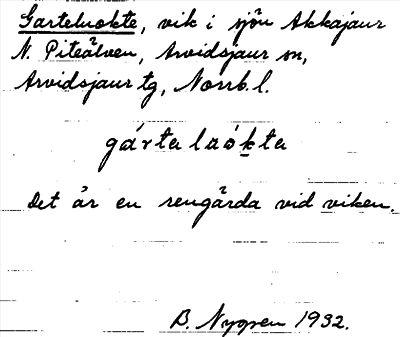 Garteluokte, vik i sjön Akkajaur
N. Piteälven, Arvidsjaur sn,
Arvidsjaur tg, Norrb. l.
gárta laók̲ta
Det är en rengärda vid viken.
B. Nygren 1932.